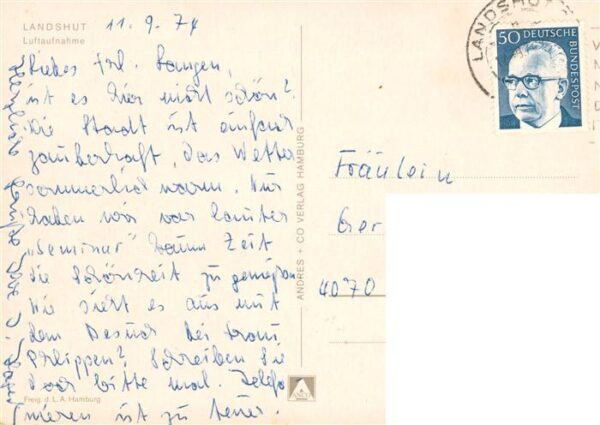 LANDSHUT
Luftaufnahme
11.9.74
Liebes Frl. Langen,
ist es hier nicht schön?
Die Stadt ist
zauberhaft, das Wetter
sommerlich warm. Nur
haben wir vor lauter
„Seminar" kaum Zeit
die Schönheit zu genießen
Wie sieht es aus mit
dem Besuch bei Frau
Philippen? Schreiben Sie
doch bitte mal. Telefo
nieren ist zu teuer.
Herzliche Grüße Ihre
Freig. d. L. A. Hamburg
ANDRES + CO VERLAG HAMBURG
LANDSHUT
50 DEUTSCHE BUNDESPOST
Fräulein
Ger
4070